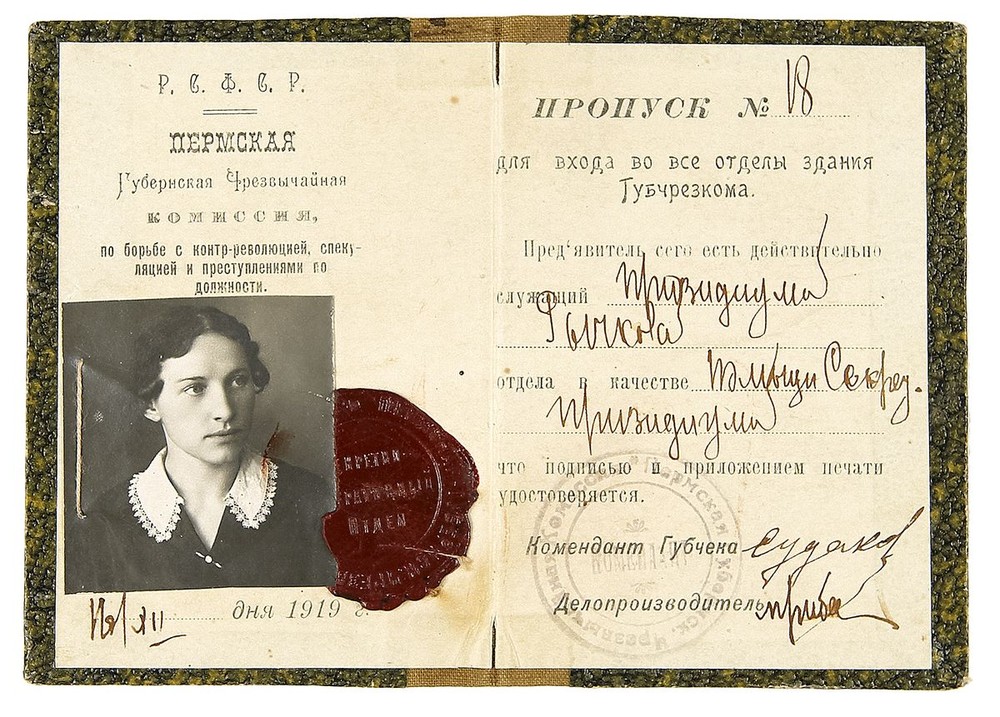 Р. С. Ф. С. Р.
ПЕРМСКАЯ
Губернская Чрезвычайная
КОМИССИЯ,
по борьбе с контр-революцией, спеку-
ляцией и преступлениями по
должности.
дня 1919 г.
ПРОПУСК № 18
для входа во все отделы здания
Губчрезкома.
Пред‘явитель сего есть действительно
служащий Призидиума
Рычкова
отдела в качестве Секрет.
Призидиума
что подписью и приложением печати
удостоверяется.
Комендант Губчека Судаков
Делопроизводитель
Отдел
КОМЕНДАНТ